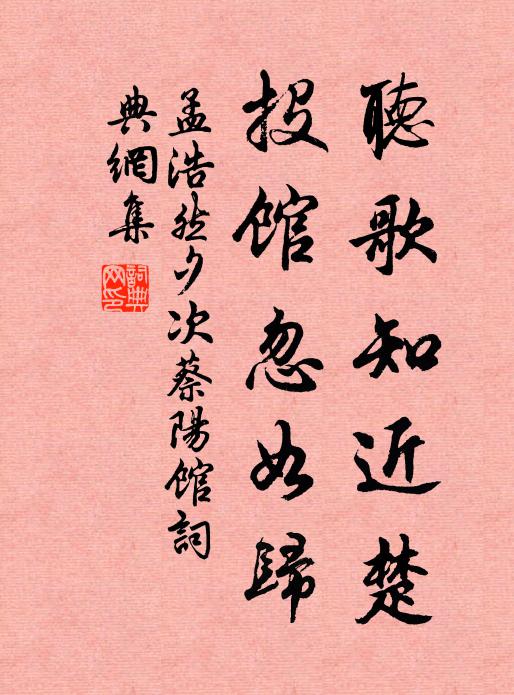 聽歌知近楚
投館忽如歸
孟浩然夕次蔡陽館詞
典網集
詞典網印